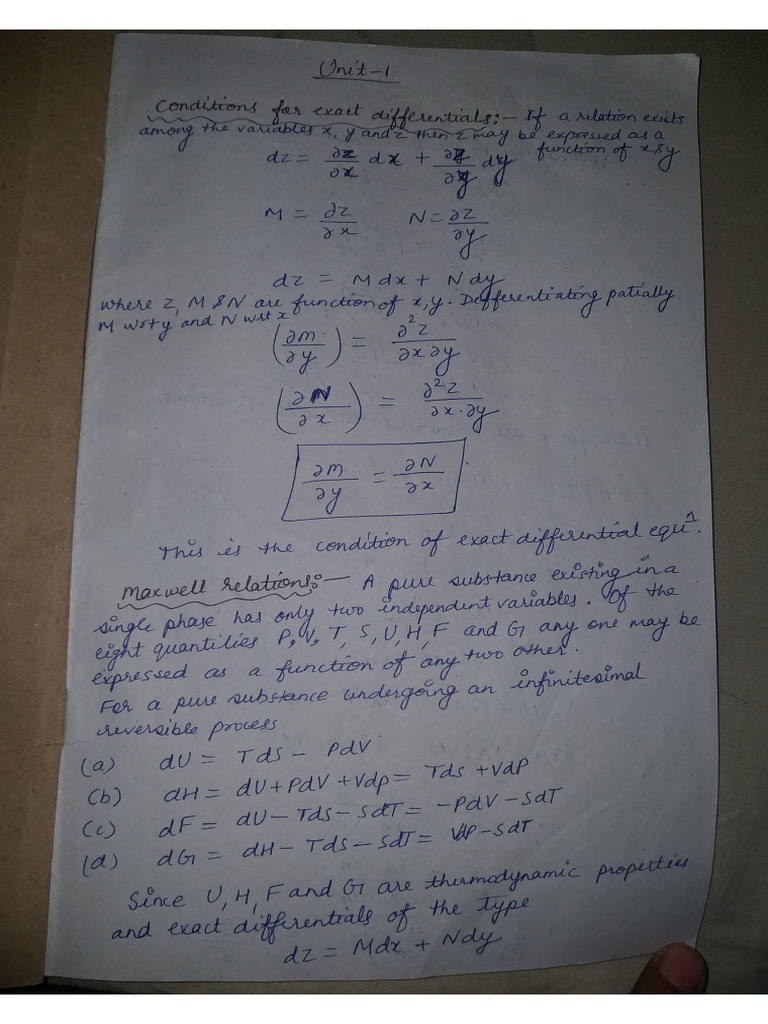 Unit-1
Conditions for exact differentials:- If a relation exists
among the variables x, y and z then z may be expressed as a
function of x & y
dz = ∂z/∂x dx + ∂z/∂y dy
M = ∂z/∂x N = ∂z/∂y
dz = Mdx + Ndy
where z, M & N are function of x, y. Differentiating patially
M wrt y and N wrt x
(∂m/∂y) = ∂²z/∂x∂y
(∂N/∂x) = ∂²z/∂x.∂y
∂m/∂y = ∂N/∂x
This is the condition of exact differential equⁿ.
Maxwell relations:- A pure substance existing in a
single phase has only two independent variables. Of the
eight quantities P, V, T, S, U, H, F and G any one may be
expressed as a function of any two other.
For a pure substance undergoing an infinitesimal
reversible process
(a) dU = Tds - PdV
(b) dH = dU + PdV + Vdp = Tds + VdP
(c) dF = dU - Tds - SdT = -PdV - SdT
(d) dG = dH - Tds - SdT = VdP - SdT
Since U, H, F and G are thermodynamic properties
and exact differentials of the type
dz = Mdx + Ndy